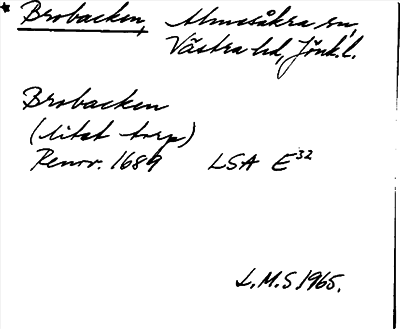 * Brobacken, Almesåkra sn,
Västra hd, Jönk.l.
Brobacken
(litet torp)
Renov. 1689 LSA E32
L.M.S 1965.